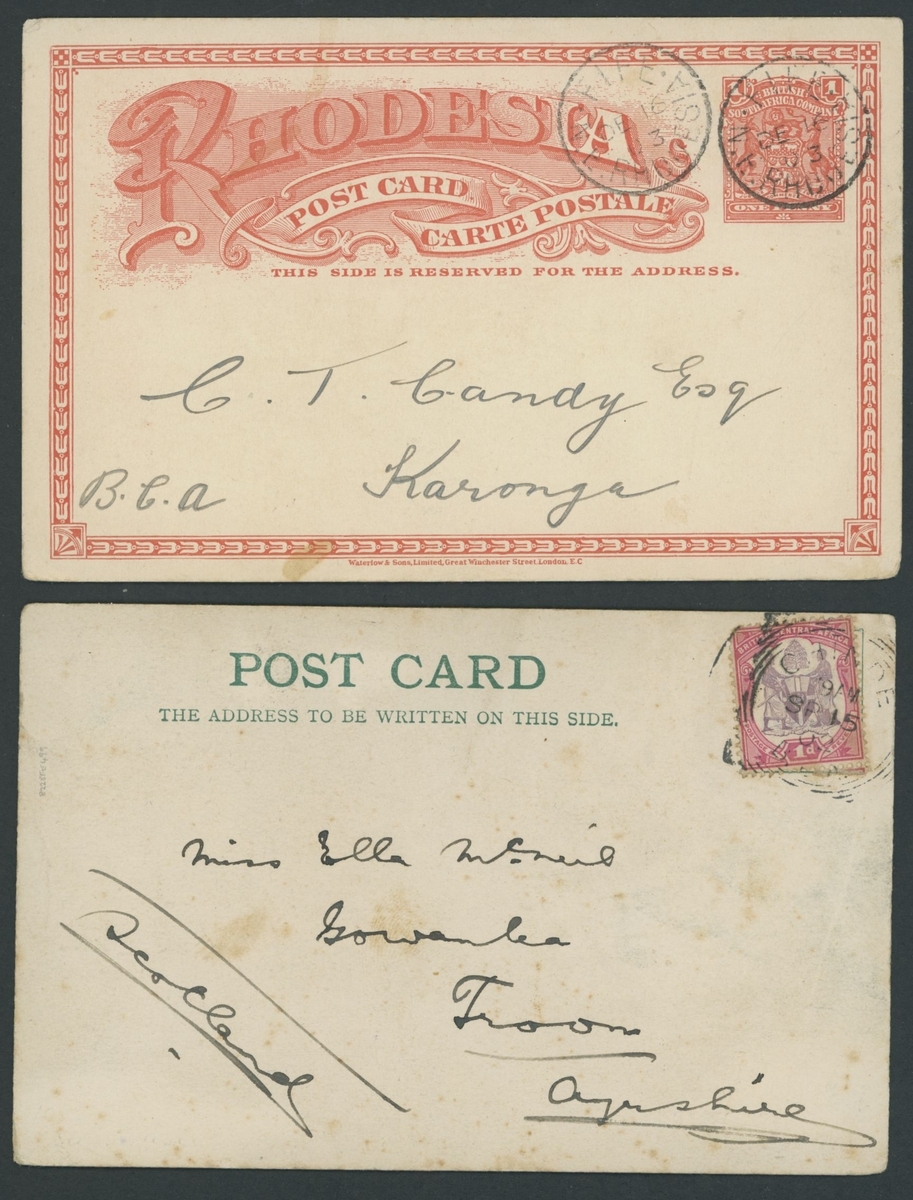 RHODESIA
POST CARD
CARTE POSTALE
THIS SIDE IS RESERVED FOR THE ADDRESS.
BRITISH
SOUTH AFRICA COMPANY
1
ONE PENNY
FIFE
DE
03
C. T. Candy Esq
B.C.A Karonga
Waterlow & Sons, Limited, Great Winchester Street, London, E.C
POST CARD
THE ADDRESS TO BE WRITTEN ON THIS SIDE.
BRITISH CENTRAL AFRICA
1d
SP 15
Miss Ella McNeil
Gowanlea
Troon
Ayrshire
Scotland